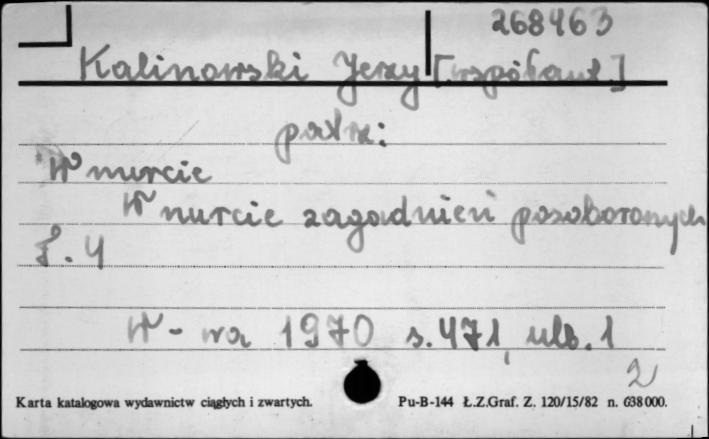 268463
Kalinowski Jerzy [współaut.]
patrz:
W nurcie
W nurcie zagadnień posoborowych
T. 4
W-wa 1970 s. 471, nlb. 1
2
Karta katalogowa wydawnictw ciągłych i zwartych. Pu-B-144 Ł.Z.Graf. Z. 120/15/82 n. 638000.